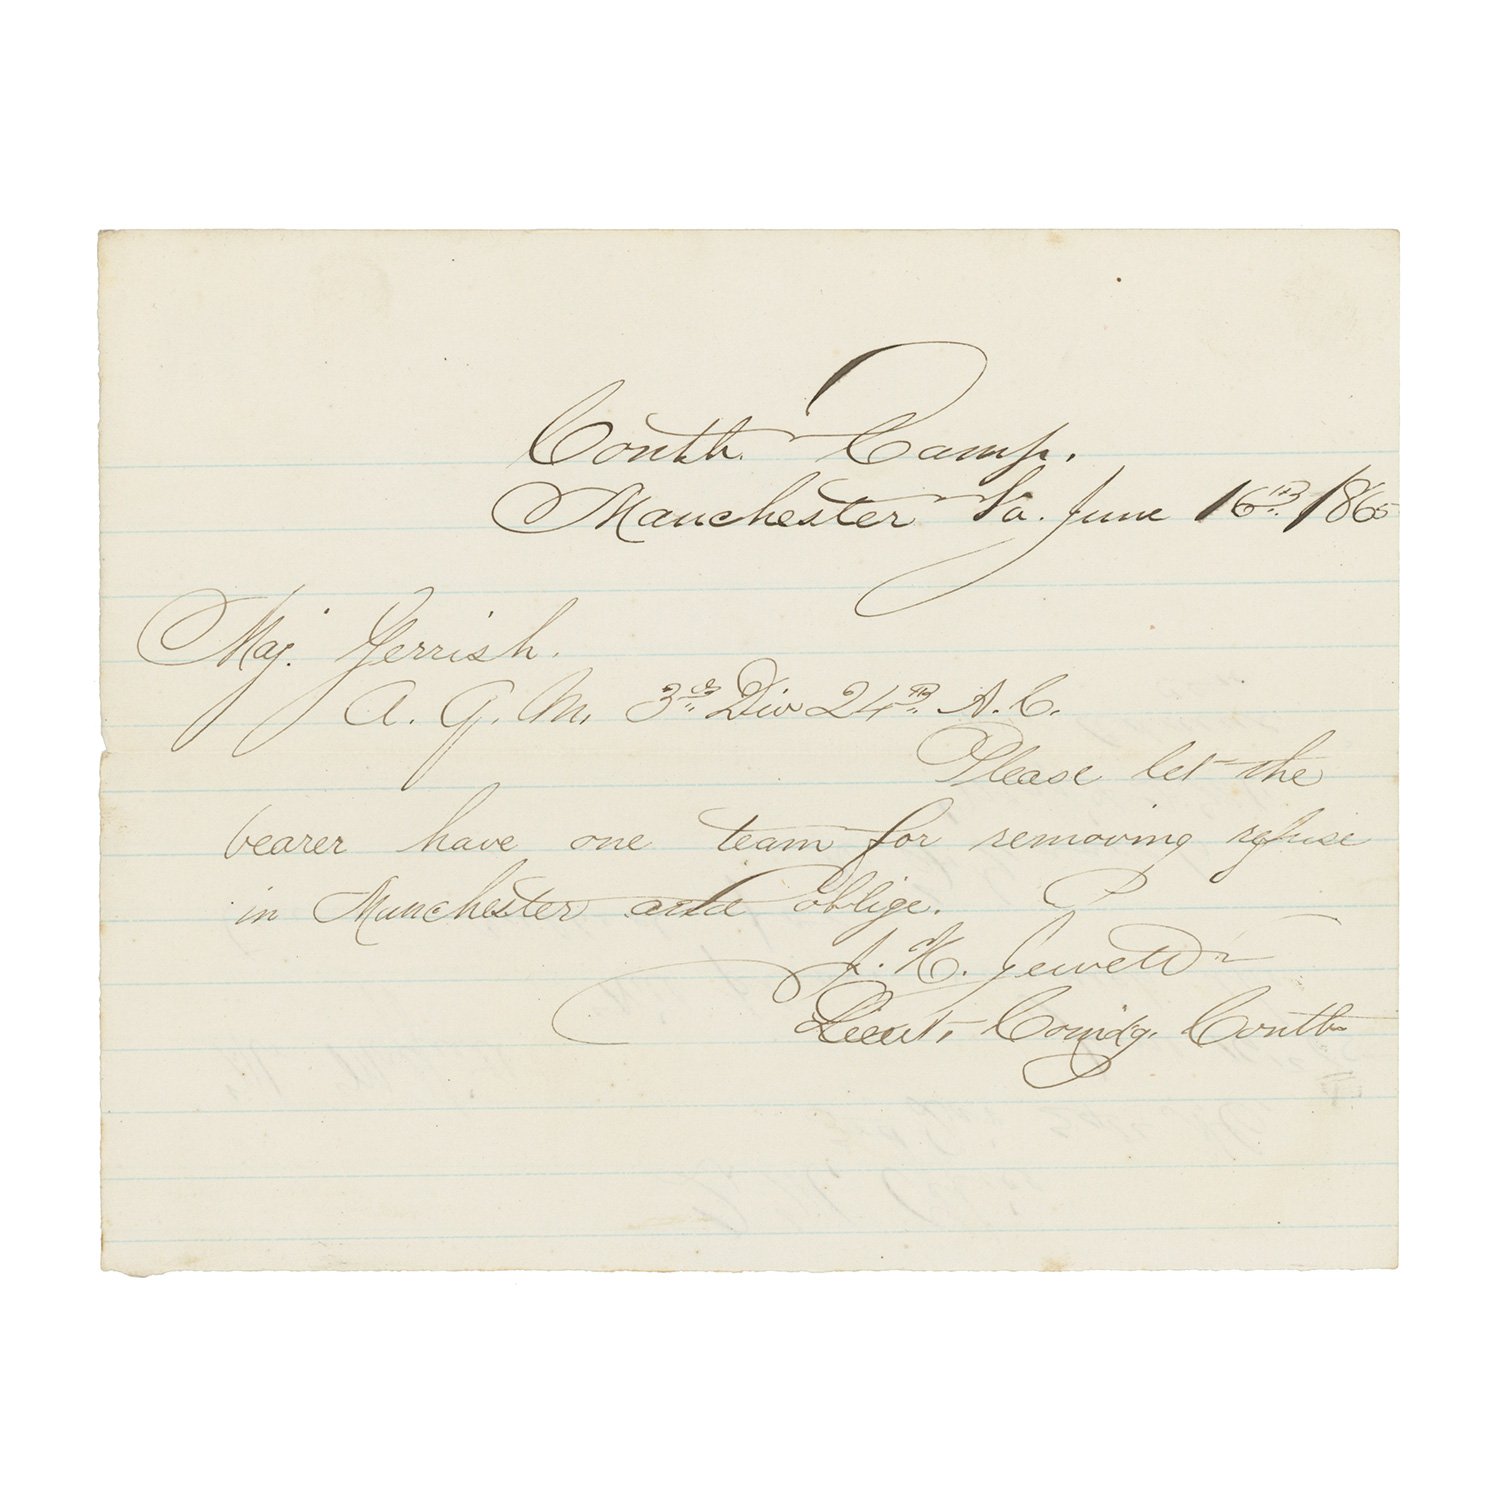 Contb. Camp.
Manchester Va. June 16th. 1865
Maj. Gerrish.
A. Q. M. 3rd. Div 24th. A. C.
Please let the
bearer have one team for removing refuse
in Manchester and oblige.
J. H. Jewett
Lieut. Comdg. Contb